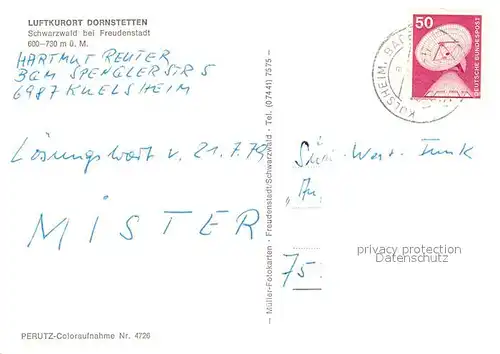 LUFTKURORT DORNSTETTEN
Schwarzwald bei Freudenstadt
600–730 m ü. M.
HARTMUT REUTER
BGM SPENGLER STR 5
6987 KUELSHEIM
Lösungswort v. 21.7.79
MISTER
PERUTZ-Coloraufnahme Nr. 4726
Müller-Fotokarten · Freudenstadt/Schwarzwald · Tel. (07441) 7575
50
DEUTSCHE BUNDESPOST
KÜLSHEIM, BADEN
West-Funk
75
privacy protection
Datenschutz